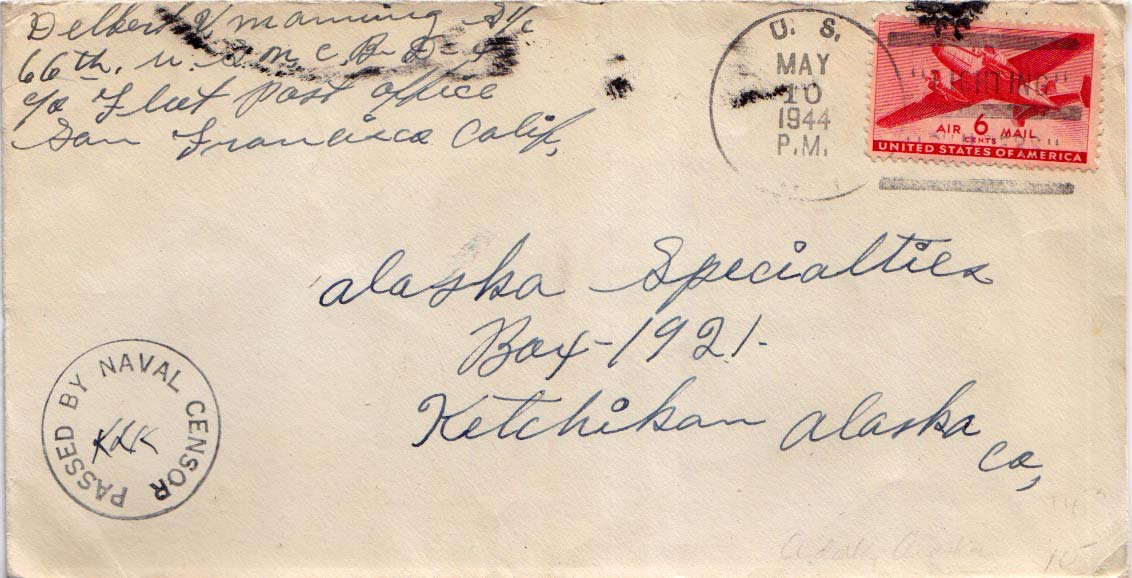 Delbert V. Manning S1/c
66th. U.S.N.C.B. D-4
c/o Fleet Post Office
San Francisco Calif.
U. S.
MAY
10
1944
P.M.
AIR 6 MAIL
CENTS
UNITED STATES OF AMERICA
Alaska Specialties
Box-1921-
Ketchikan Alaska
Co,
PASSED BY NAVAL CENSOR
KLK
Adak, Alaska
10-